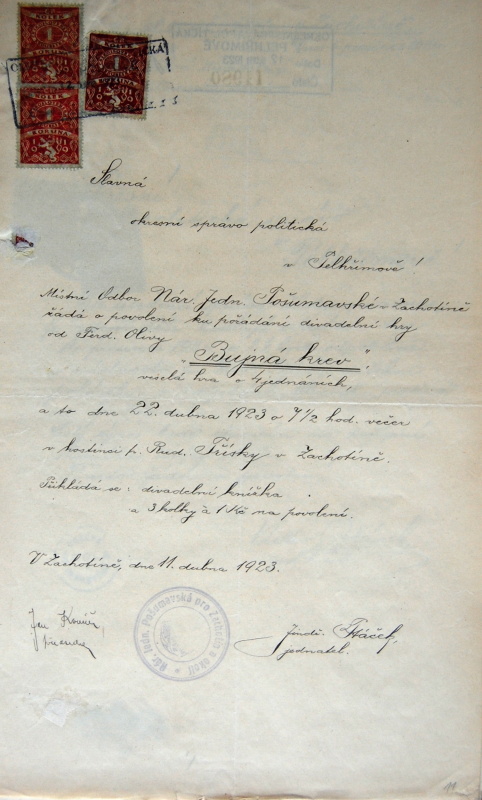 KOLEK
1
KORUNA
KOLEK
1
KORUNA
1
KORUNA
Slavná
okresní správo politická
v Pelhřimově!
Místní Odbor Nár. Jedn. Pošumavské v Zachotíně
žádá o povolení ku pořádání divadelní hry
od Ferd. Olivy
"Bujná krev",
veselá hra o 4 jednáních,
a to dne 22. dubna 1923 o 7 1/2 hod. večer
v hostinci p. Rud. Třísky v Zachotíně.
Přikládá se: divadelní knížka
a 3 kolky à 1 Kč na povolení.
V Zachotíně, dne 11. dubna 1923.
Jan
Nár. Jedn. Pošumavská pro Zachotín a okolí
Jindř. Ptáček,
jednatel.